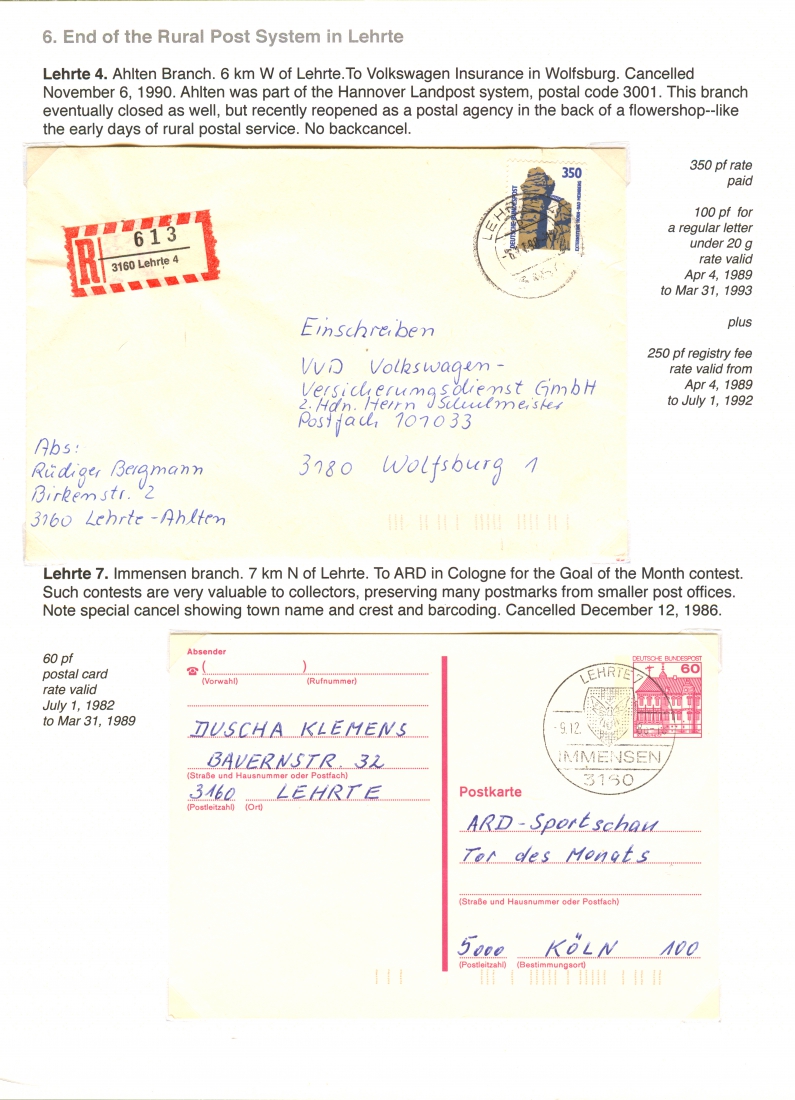 6. End of the Rural Post System in Lehrte
Lehrte 4. Ahlten Branch. 6 km W of Lehrte.To Volkswagen Insurance in Wolfsburg. Cancelled
November 6, 1990. Ahlten was part of the Hannover Landpost system, postal code 3001. This branch
eventually closed as well, but recently reopened as a postal agency in the back of a flowershop--like
the early days of rural postal service. No backcancel.
350 pf rate
paid
100 pf for
a regular letter
under 20 g
rate valid
Apr 4, 1989
to Mar 31, 1993
plus
250 pf registry fee
rate valid from
Apr 4, 1989
to July 1, 1992
350
DEUTSCHE BUNDESPOST
R 613
3160 Lehrte 4
Einschreiben
VVD Volkswagen-
Versicherungsdienst GmbH
z. Hdn. Herrn Schulmeister
Postfach 101033
3180 Wolfsburg 1
Abs:
Rüdiger Bergmann
Birkenstr. 2
3160 Lehrte-Ahlten
Lehrte 7. Immensen branch. 7 km N of Lehrte. To ARD in Cologne for the Goal of the Month contest.
Such contests are very valuable to collectors, preserving many postmarks from smaller post offices.
Note special cancel showing town name and crest and barcoding. Cancelled December 12, 1986.
60 pf
postal card
rate valid
July 1, 1982
to Mar 31, 1989
Absender
☎ ( )
(Vorwahl) (Rufnummer)
DUSCHA KLEMENS
BAUERNSTR. 32
(Straße und Hausnummer oder Postfach)
3160 LEHRTE
(Postleitzahl) (Ort)
DEUTSCHE BUNDESPOST
60
LEHRTE 7
-9.12.
IMMENSEN
3160
Postkarte
ARD-Sportschau
Tor des Monats
(Straße und Hausnummer oder Postfach)
5000 KÖLN 100
(Postleitzahl) (Bestimmungsort)